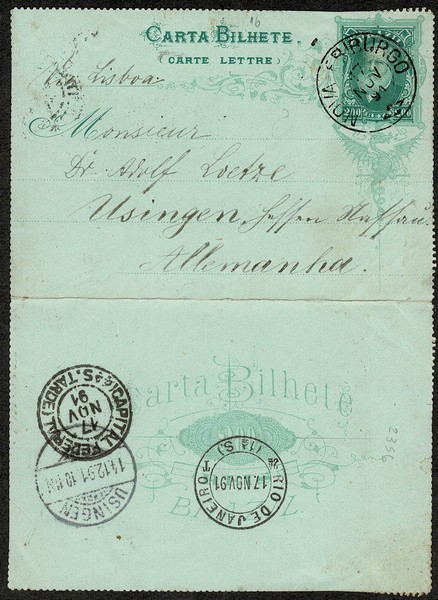 16
CARTA BILHETE.
(CARTE LETTRE)
200
NOVA FRIBURGO
NOV
91
Via Lisboa
Monsieur
Dr Adolf Loetze
Usingen, Hessen Nassau.
Allemanha.
Carta Bilhete
BRAZIL
2356
CAPITAL FEDERAL
17
NOV
91
(S. TARDE)
USINGEN
14.12.91.10
RIO DE JANEIRO
17 NOV 91